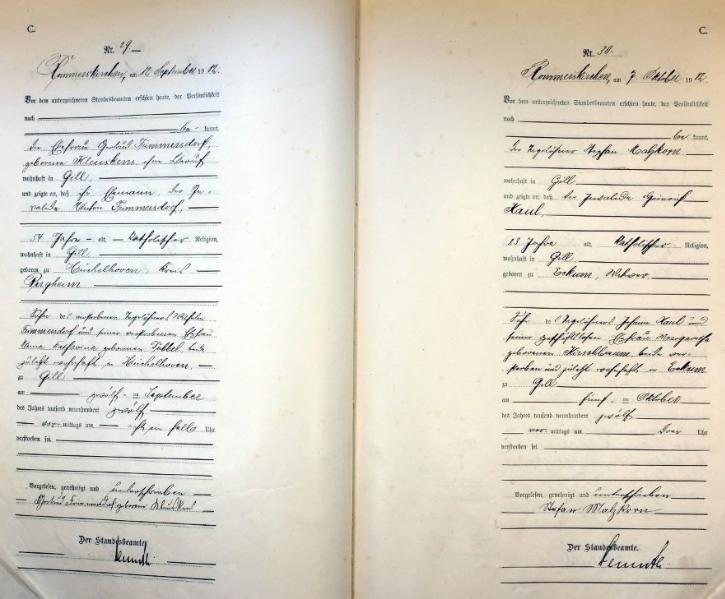 C.
Nr. 29.
Rommerskirchen, am 12 September 1912.
Vor dem unterzeichneten Standesbeamten erschien heute, der Persönlichkeit
nach
be- kannt,
die Ehefrau Gertrud Trimmersdorf,
geborene ohne Beruf
wohnhaft in Gill
und zeigte an, daß ihr Ehemann, der In-
valide Anton Trimmersdorf,
54 Jahre alt, katholischer Religion,
wohnhaft in Gill
geboren zu Hüchelhoven Kreis
Bergheim
Sohn des verstorbenen Tagelöhners Wilhelm
Trimmersdorf und seiner verstorbenen Ehefrau
Anna Katharina geborenen beide
zuletzt wohnhaft in Hüchelhoven,
zu Gill
am zwölf- ten September
des Jahres tausend neunhundert zwölf
vor- mittags um acht ein halb Uhr
verstorben sei.
Vorgelesen, genehmigt und unterschrieben
Gertrud Trimmersdorf geborene
Der Standesbeamte.
C.
Nr. 30.
Rommerskirchen, am 7 Oktober 1912.
Vor dem unterzeichneten Standesbeamten erschien heute, der Persönlichkeit
nach
be kannt,
der Tagelöhner Stephan Malzkorn
wohnhaft in Gill
und zeigte an, daß der Invalide Heinrich
Kaul,
Jahre alt, katholischer Religion,
wohnhaft in Gill
geboren zu Eckum,
Sohn des Tagelöhners Johann Kaul und
seiner geschäftslosen Ehefrau Margaretha
geborenen Kirschbaum, beide ver-
storben und zuletzt wohnhaft in Eckum
zu Gill
am fünf- ten Oktober
des Jahres tausend neunhundert zwölf
vor- mittags um drei Uhr
verstorben sei.
Vorgelesen, genehmigt und unterschrieben
Stefan Malzkorn
Der Standesbeamte.